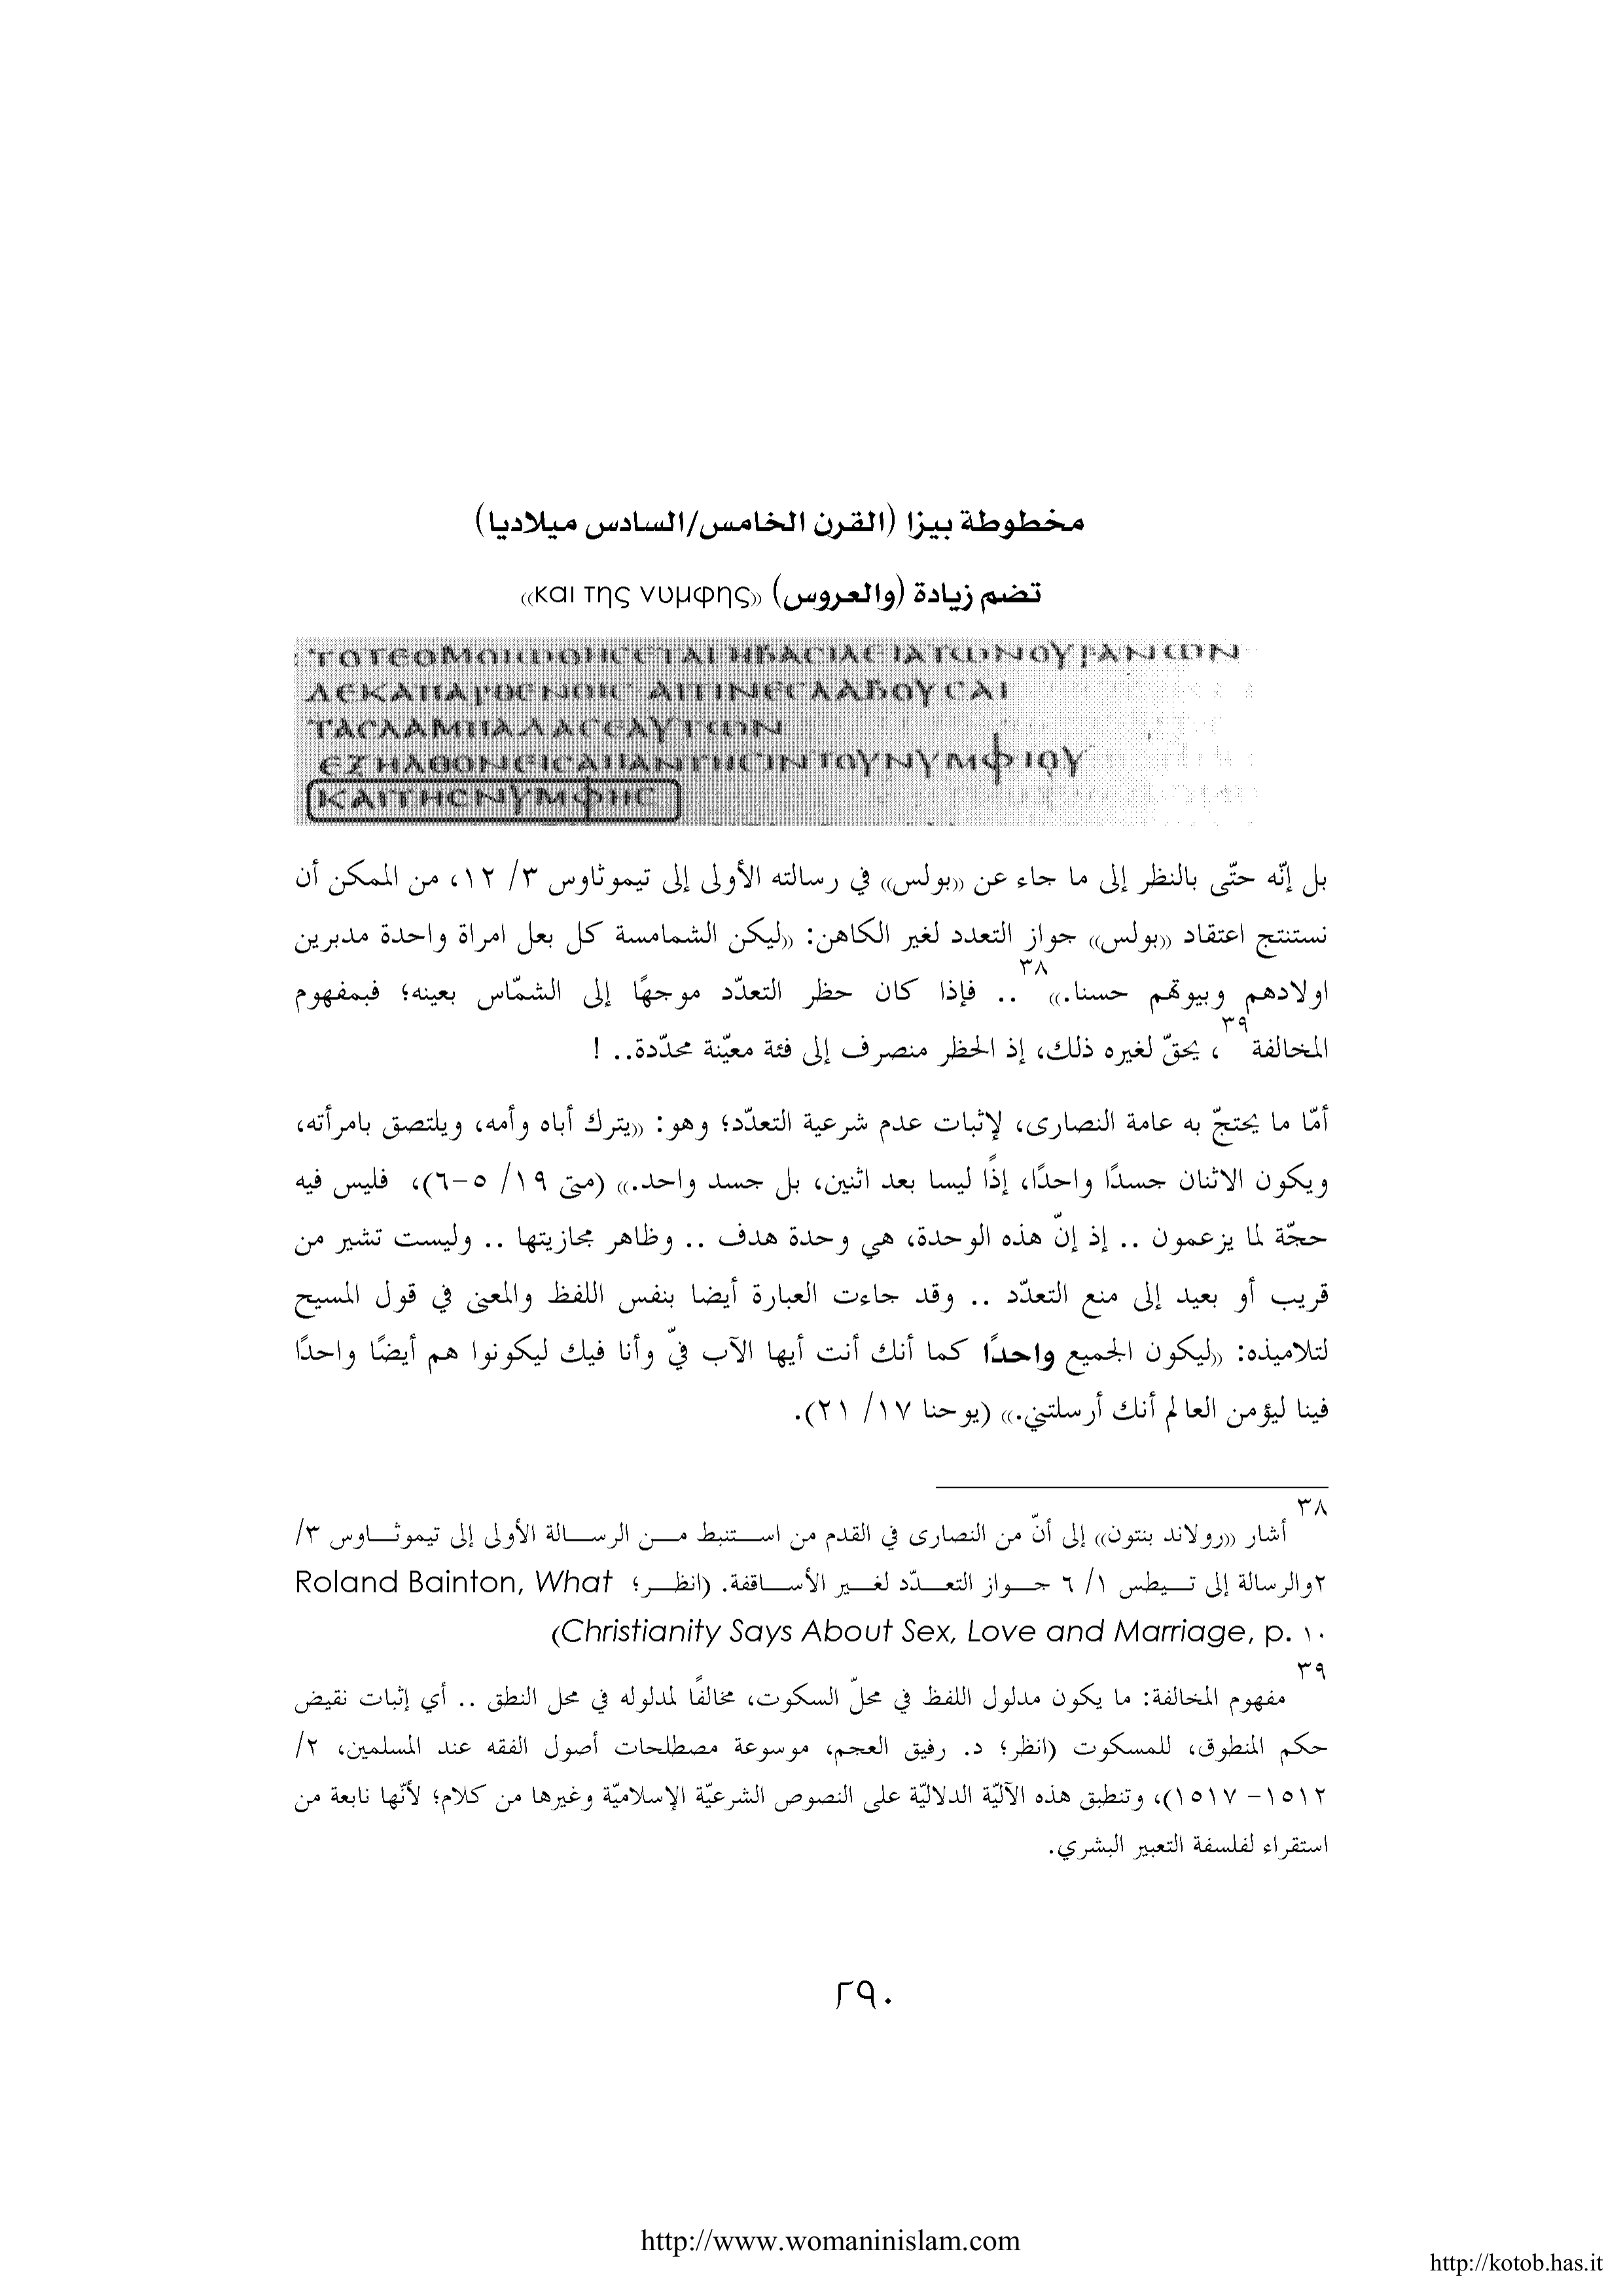 مخطوطة بيزا (القرن الخامس/السادس ميلاديا)
تضم زيادة (والعروس) «και της νυμφης»
ΤΟΤΕΟΜΟΙΩΘΗСΕΤΑΙΗΒΑСΙΛΕΙΑΤΩΝΟΥΡΑΝΩΝ
ΔΕΚΑΠΑΡΘΕΝΟΙС ΑΙΤΙΝΕСΛΑΒΟΥСΑΙ
ΤΑСΛΑΜΠΑΔΑСΕΑΥΤΩΝ
ΕΞΗΛΘΟΝΕΙСΑΠΑΝΤΗСΙΝΤΟΥΝΥΜΦΙΟΥ
ΚΑΙΤΗСΝΥΜΦΗС
بل إنّه حتّى بالنظر إلى ما جاء عن «بولس» في رسالته الأولى إلى تيموثاوس ٣/ ١٢، من الممكن أن
نستنتج اعتقاد «بولس» جواز التعدد لغير الكاهن: «ليكن الشمامسة كل بعل امراة واحدة مدبرين
اولادهم وبيوتهم حسنا.»٣٨ .. فإذا كان حظر التعدّد موجهًا إلى الشمّاس بعينه؛ فبمفهوم
المخالفة٣٩ ، يحقّ لغيره ذلك، إذ الحظر منصرف إلى فئة معيّنة محدّدة.. !
أمّا ما يحتجّ به عامة النصارى، لإثبات عدم شرعية التعدّد؛ وهو: «يترك أباه وأمه، ويلتصق بامرأته،
ويكون الاثنان جسدًا واحدًا، إذًا ليسا بعد اثنين، بل جسد واحد.» (متى ١٩/ ٥-٦)، فليس فيه
حجّة لما يزعمون .. إذ إنّ هذه الوحدة، هي وحدة هدف .. وظاهر مجازيتها .. وليست تشير من
قريب أو بعيد إلى منع التعدّد .. وقد جاءت العبارة أيضا بنفس اللفظ والمعنى في قول المسيح
لتلاميذه: «ليكون الجميع واحدًا كما أنك أنت أيها الآب فيّ وأنا فيك ليكونوا هم أيضًا واحدًا
فينا ليؤمن العالم أنك أرسلتني.» (يوحنا ١٧/ ٢١).
٣٨ أشار «رولاند بنتون» إلى أنّ من النصارى في القدم من استنبط من الرسالة الأولى إلى تيموثاوس ٣/
٢والرسالة إلى تيطس ١/ ٦ جواز التعدّد لغير الأساقفة. (انظر؛ Roland Bainton, What
Christianity Says About Sex, Love and Marriage, p. ١٠)
٣٩ مفهوم المخالفة: ما يكون مدلول اللفظ في محلّ السكوت، مخالفًا لمدلوله في محل النطق .. أي إثبات نقيض
حكم المنطوق، للمسكوت (انظر؛ د. رفيق العجم، موسوعة مصطلحات أصول الفقه عند المسلمين، ٢/
١٥١٢- ١٥١٧)، وتنطبق هذه الآليّة الدلاليّة على النصوص الشرعيّة الإسلاميّة وغيرها من كلام؛ لأنّها نابعة من
استقراء لفلسفة التعبير البشري.
٢٩٠
http://www.womaninislam.com
http://kotob.has.it